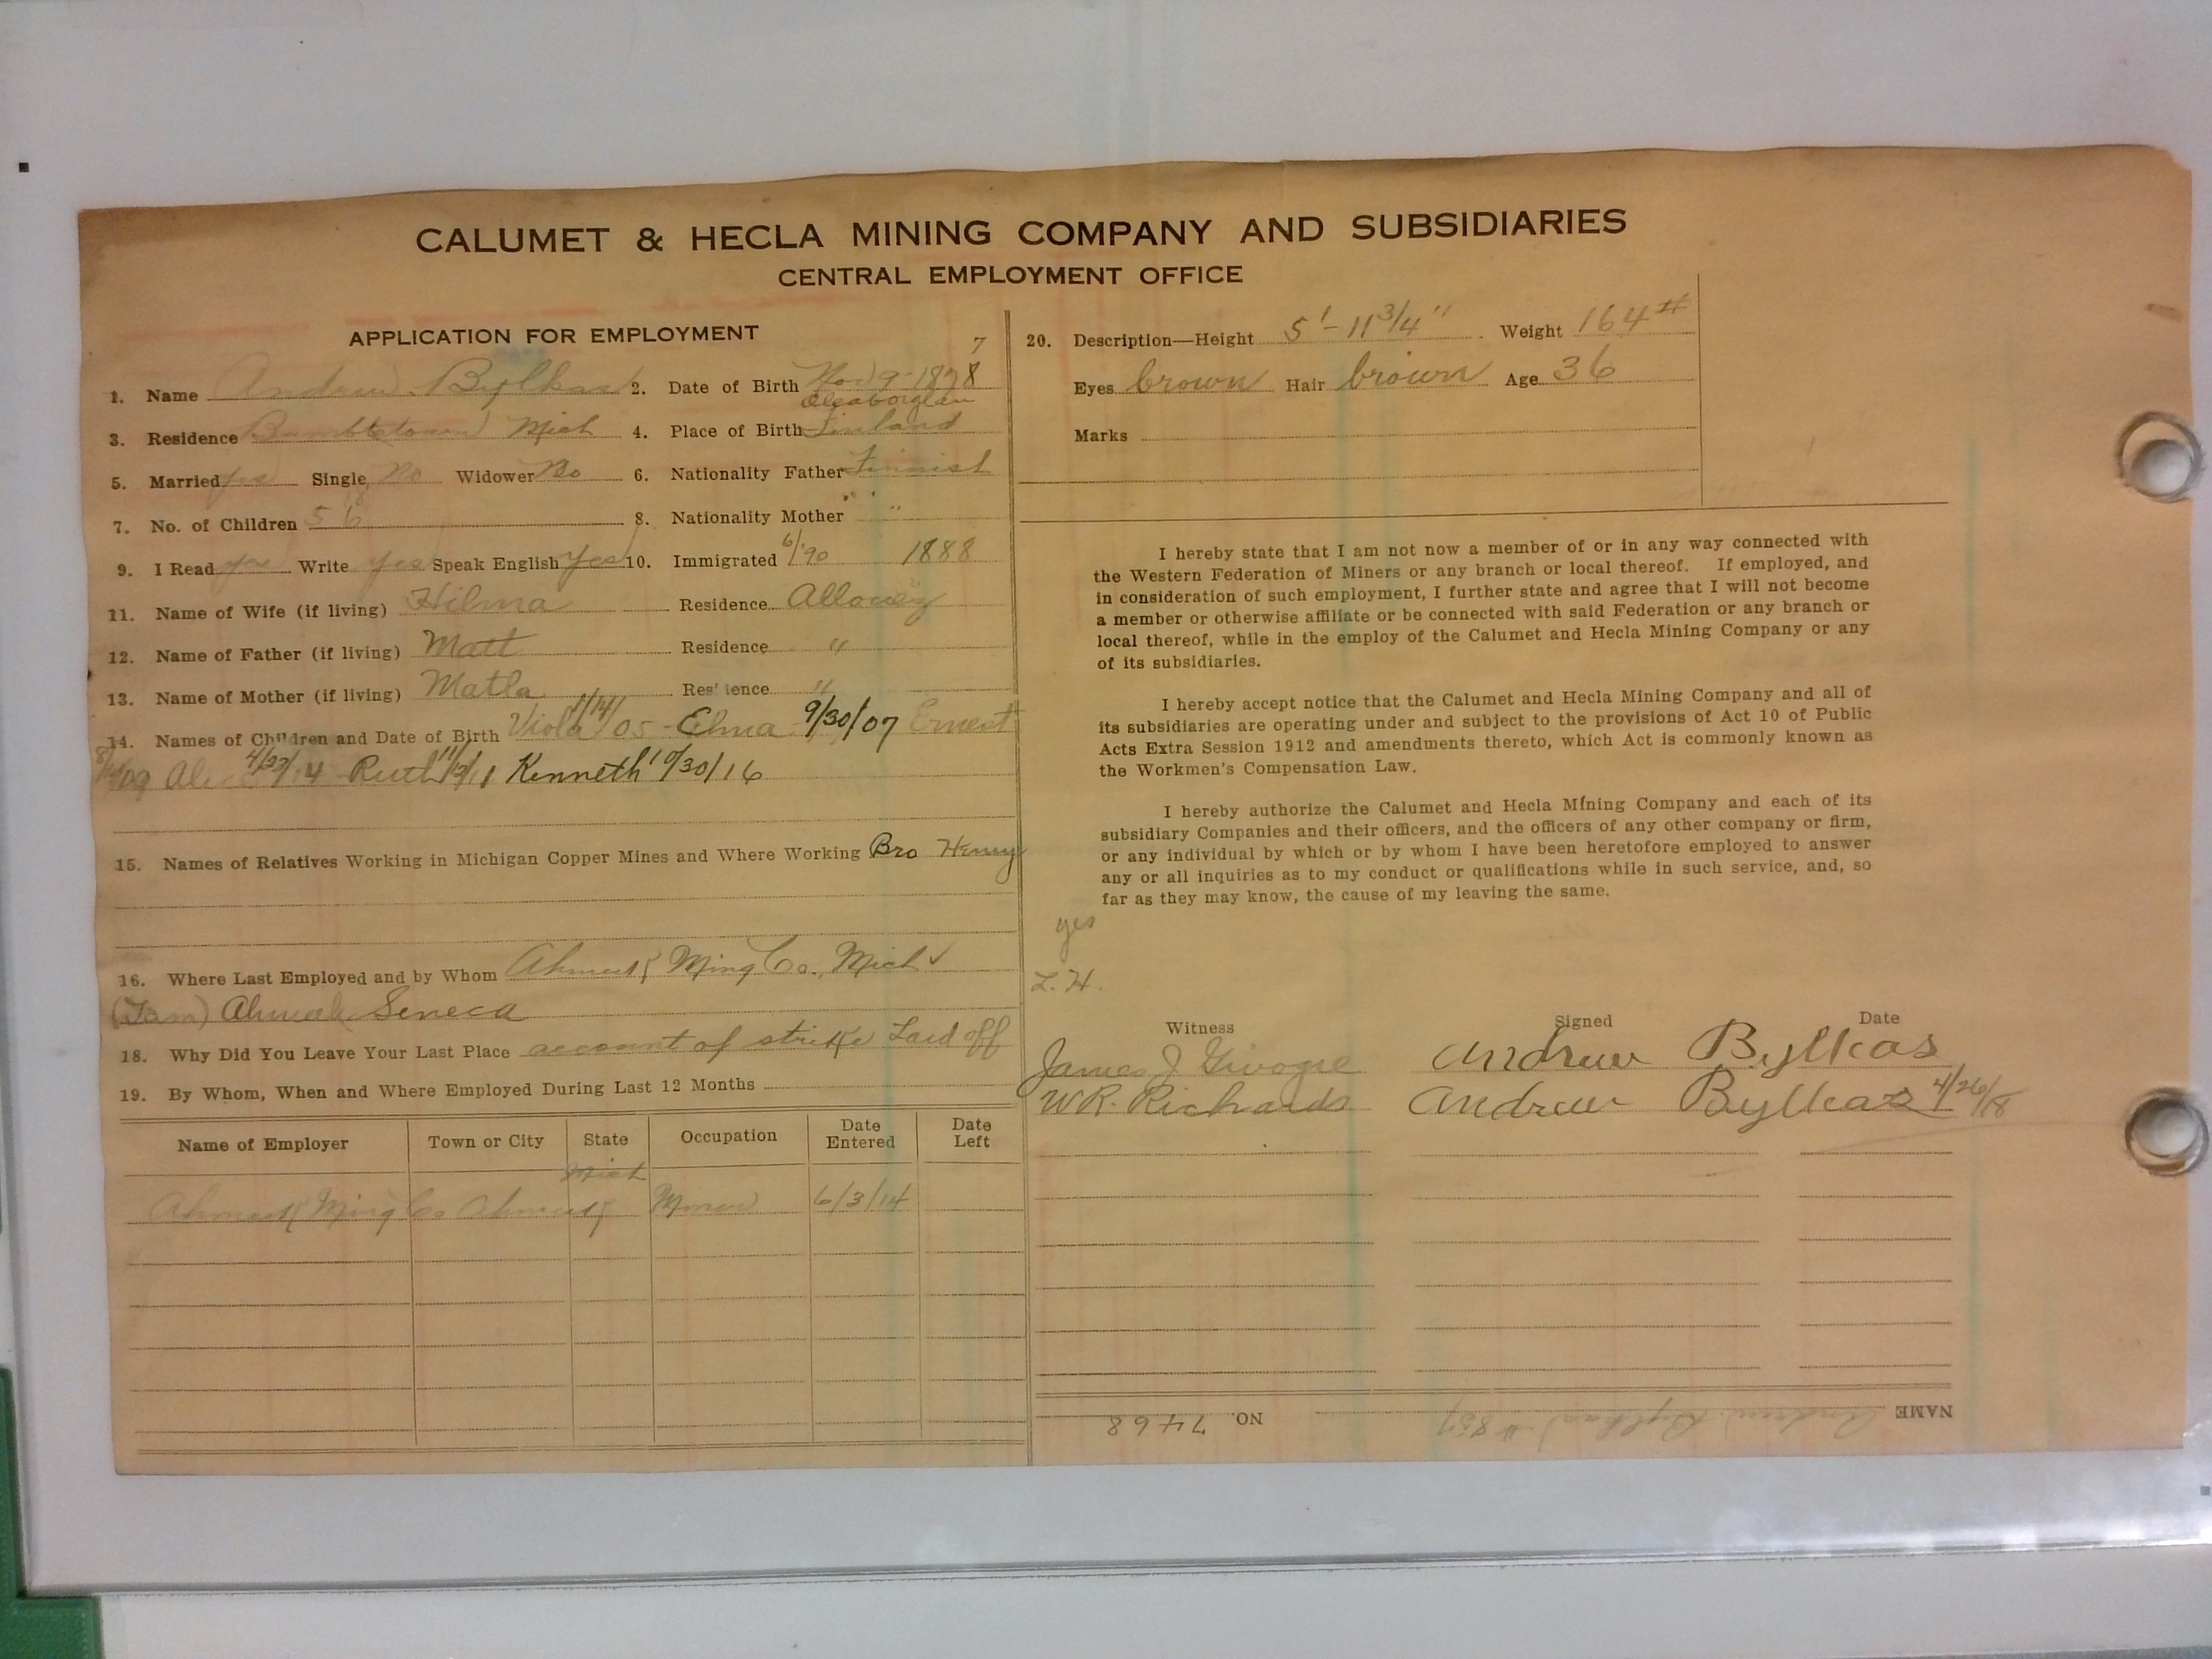 CALUMET & HECLA MINING COMPANY AND SUBSIDIARIES
CENTRAL EMPLOYMENT OFFICE
APPLICATION FOR EMPLOYMENT
7
1. Name Andrew Bylkas 2. Date of Birth Nov 9-1878
3. Residence Bumbletown Mich 4. Place of Birth Finland
5. Married Yes Single No Widower No 6. Nationality Father Finnish
7. No. of Children 5 6 8. Nationality Mother " "
9. I Read yes Write yes Speak English Yes 10. Immigrated 6/'90 1888
11. Name of Wife (if living) Hilma Residence Allouez
12. Name of Father (if living) Matt Residence "
13. Name of Mother (if living) Matla Residence "
14. Names of Children and Date of Birth Viola 1/14/05 - Elma 9/30/07 Ernest
/09 4/23/14 Ruth Kenneth 10/30/16
15. Names of Relatives Working in Michigan Copper Mines and Where Working Bro Henry
16. Where Last Employed and by Whom Ahmeek Ming Co. Mich ✓
Ahmeek Seneca
18. Why Did You Leave Your Last Place account of strike Laid off
19. By Whom, When and Where Employed During Last 12 Months
Name of Employer Town or City State Occupation Date Entered Date Left
Mich
Ahmeek Ming Co Ahmeek Miner 6/3/14
20. Description—Height 5'-11 3/4" Weight 164 #
Eyes brown Hair brown Age 36
Marks
I hereby state that I am not now a member of or in any way connected with
the Western Federation of Miners or any branch or local thereof. If employed, and
in consideration of such employment, I further state and agree that I will not become
a member or otherwise affiliate or be connected with said Federation or any branch or
local thereof, while in the employ of the Calumet and Hecla Mining Company or any
of its subsidiaries.
I hereby accept notice that the Calumet and Hecla Mining Company and all of
its subsidiaries are operating under and subject to the provisions of Act 10 of Public
Acts Extra Session 1912 and amendments thereto, which Act is commonly known as
the Workmen's Compensation Law.
I hereby authorize the Calumet and Hecla Mining Company and each of its
subsidiary Companies and their officers, and the officers of any other company or firm,
or any individual by which or by whom I have been heretofore employed to answer
any or all inquiries as to my conduct or qualifications while in such service, and, so
far as they may know, the cause of my leaving the same.
yes
L.H.
Witness Signed Date
James J Andrew Bylkas
W.R. Richards Andrew Bylkas 4/26/18
NAME Andrew Bylkas # 857 NO. 7468